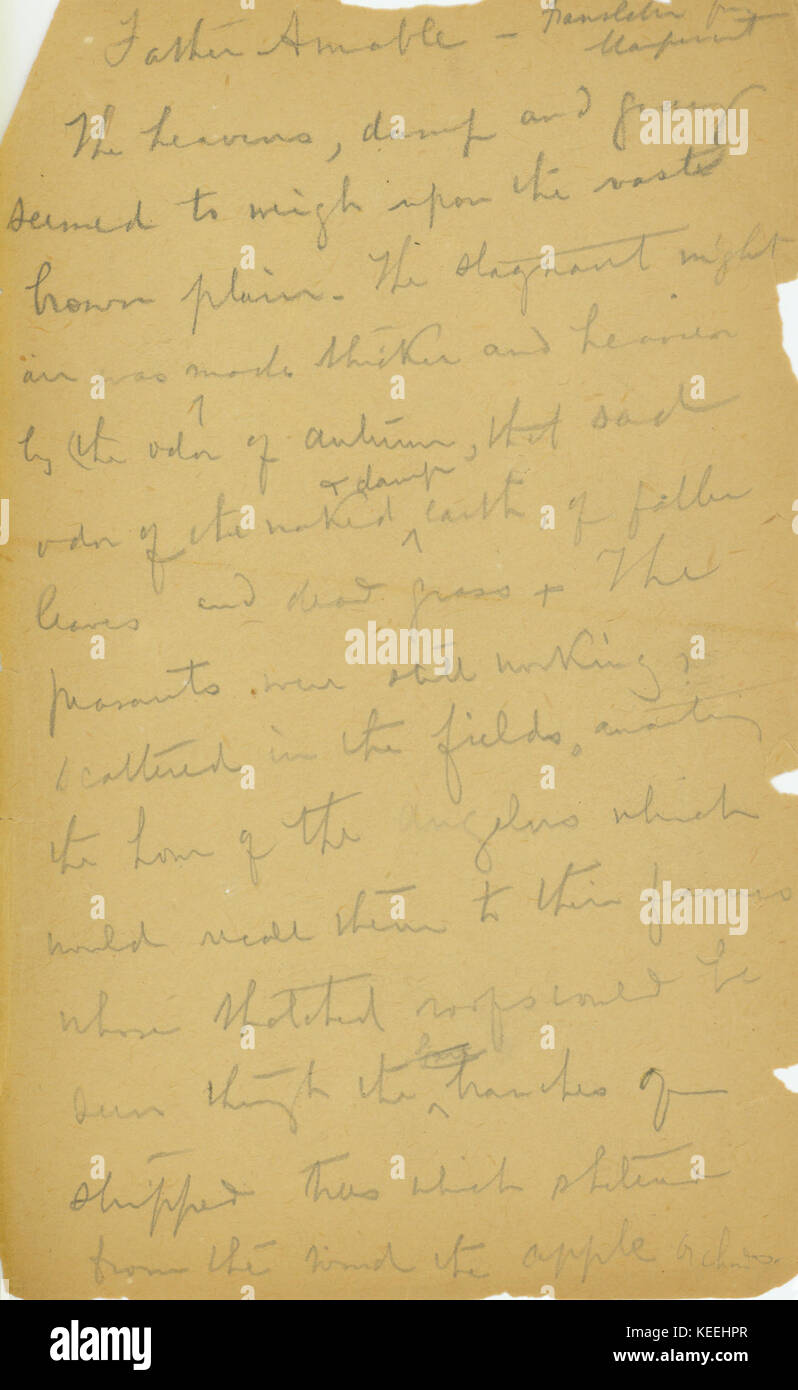 Father Amable – Translated from
Maupassant
The heavens, damp and grey
seemed to weigh upon the vast
brown plain. The stagnant night
air was made thicker and heavier
by (the odor of autumn, that sad
& damp
odor of the naked earth of fallen
leaves and dead grass + The
peasants were still working,
scattered in the fields, awaiting
the hour of the angelus which
would recall them to their farms
whose thatched roofs could be
seen through the branches of
stripped trees which sheltered
from the wind the apple orchards.
alamy
Image ID: KEEHPR
www.alamy.com